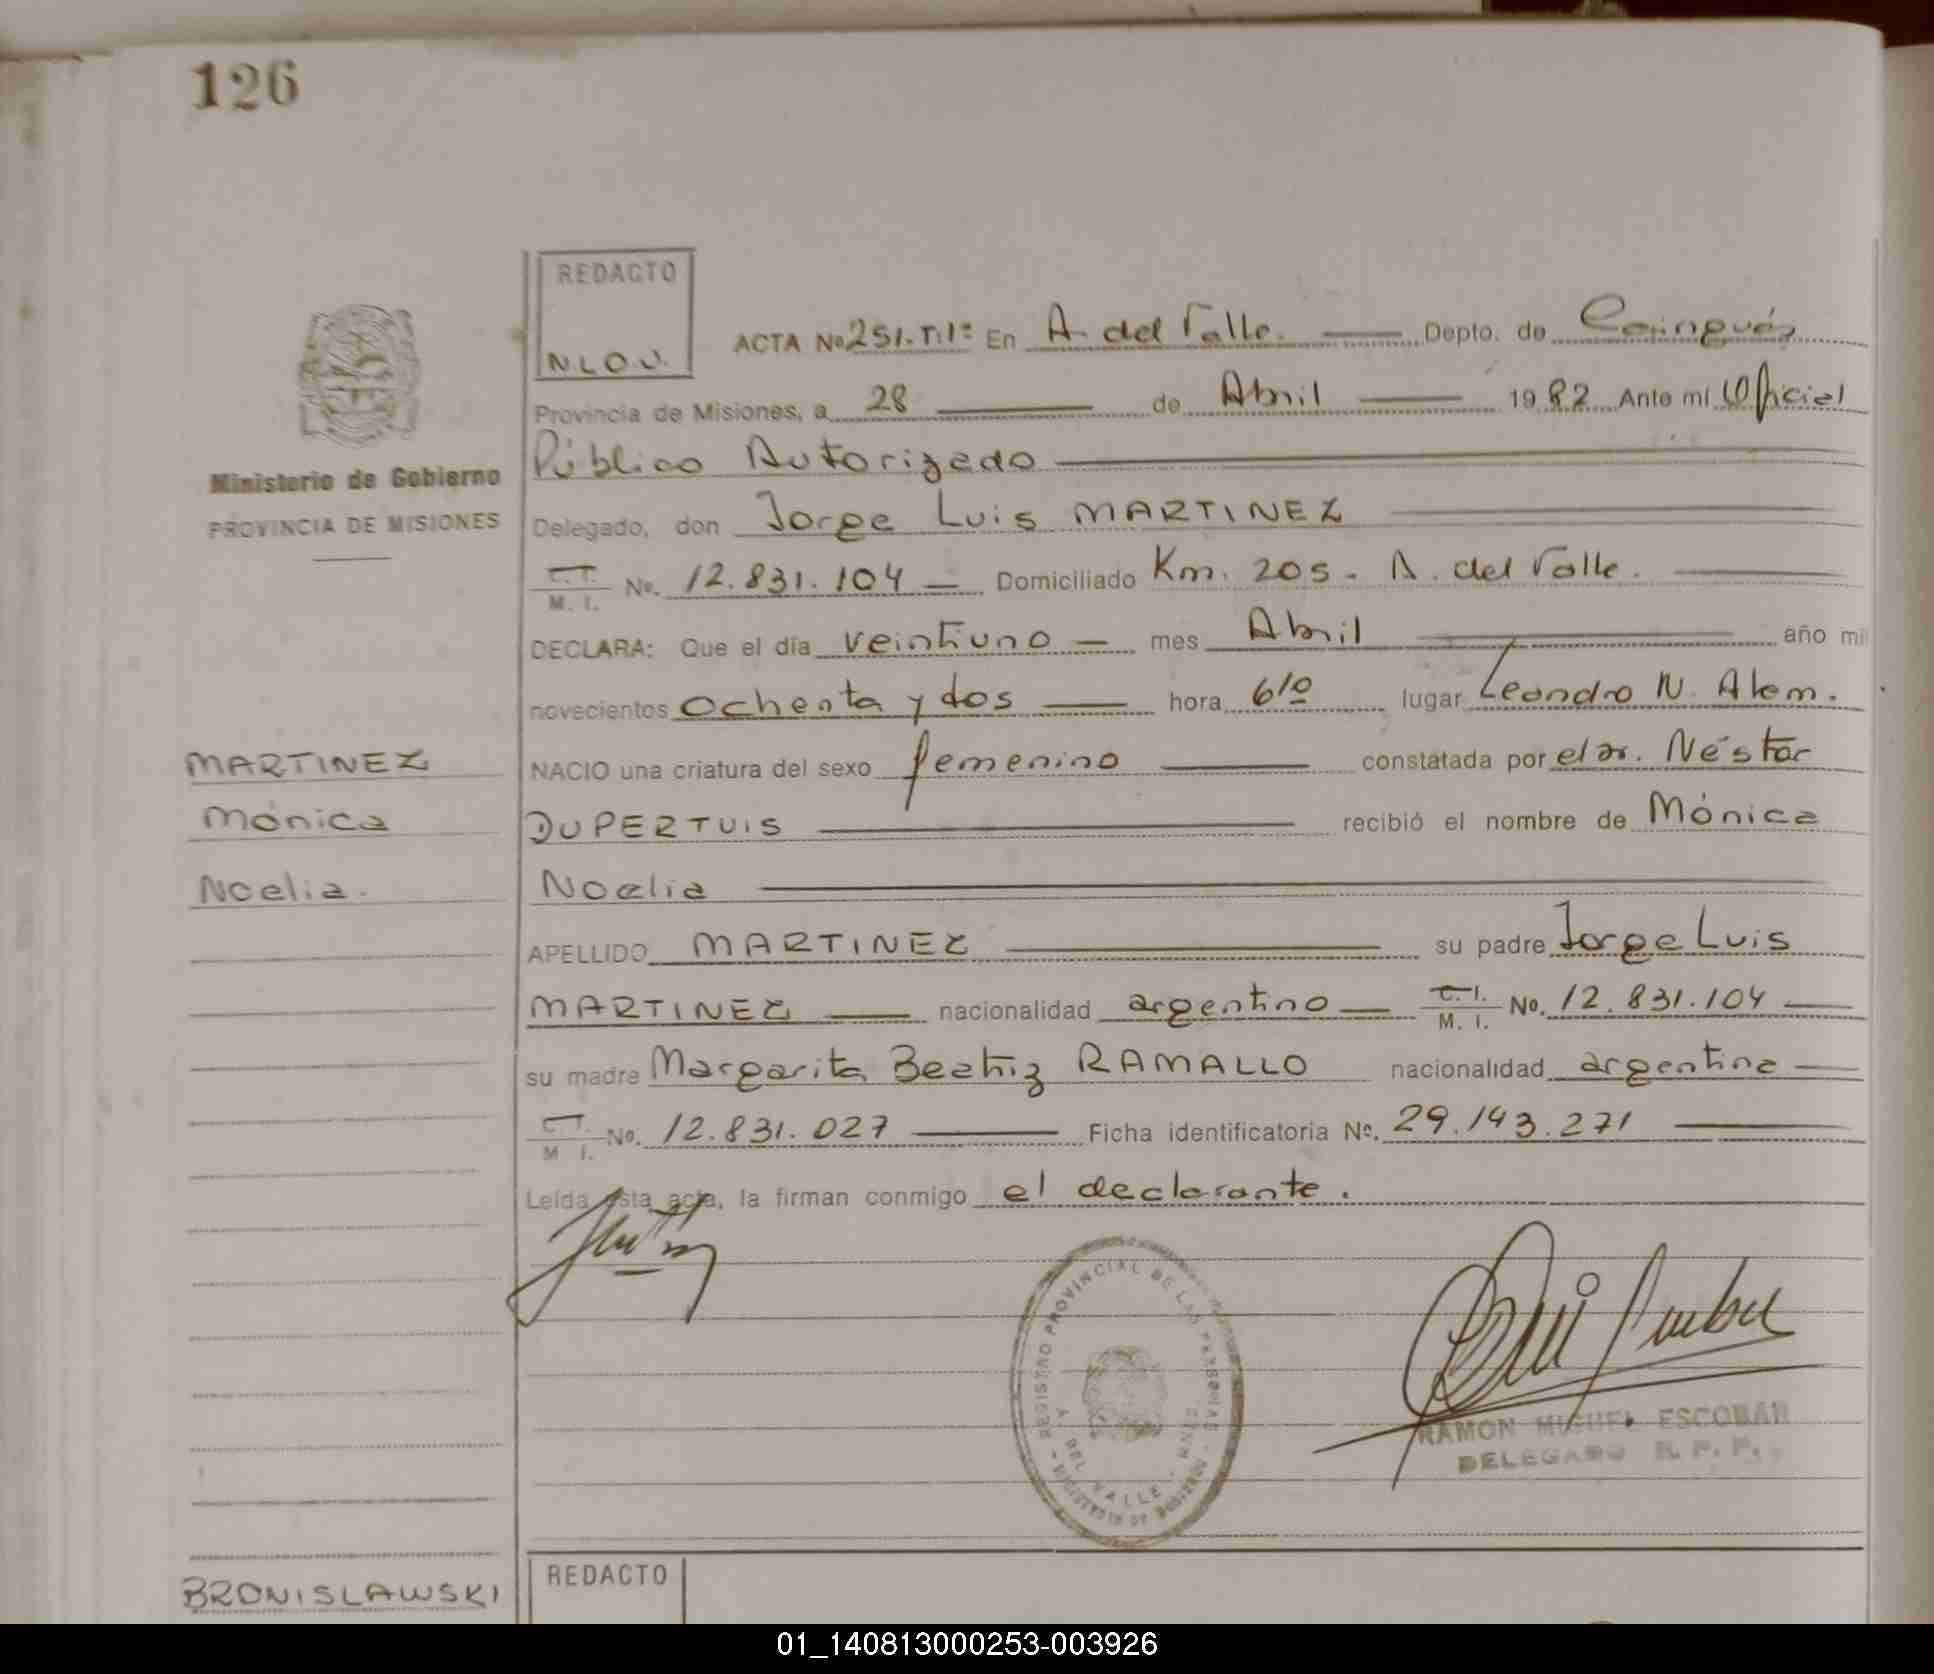 126
REDACTO
N.L.O.V.
ACTA No 251.T:1º En A. del Valle. Depto. de Cainguás
Provincia de Misiones, a 28 de Abril 1982 Ante mí Oficial
Ministerio de Gobierno
Público Autorizado
PROVINCIA DE MISIONES
Delegado, don Jorge Luis MARTINEZ
C.I. M. I. No. 12.831.104 Domiciliado Km. 205 - A. del Valle.
DECLARA: Que el día veintiuno mes Abril año mil
novecientos ochenta y dos hora 6/0 lugar Leandro N. Alem.
MARTINEZ
NACIO una criatura del sexo femenino constatada por el Dr. Néstor
Mónica
DUPERTUIS recibió el nombre de Mónica
Noelia.
Noelia
APELLIDO MARTINEZ su padre Jorge Luis
MARTINEZ nacionalidad argentino C.I. M. I. No. 12.831.104
su madre Margarita Beatriz RAMALLO nacionalidad argentina
C.I. M I. No. 12.831.027 Ficha identificatoria No. 29.143.271
Leída esta acta, la firman conmigo el declarante.
REGISTRO PROVINCIAL DE LAS PERSONAS
A DEL VALLE
RAMON MIGUEL ESCOBAR
DELEGADO R. P. P.
BRONISLAWSKI
REDACTO
01_140813000253-003926